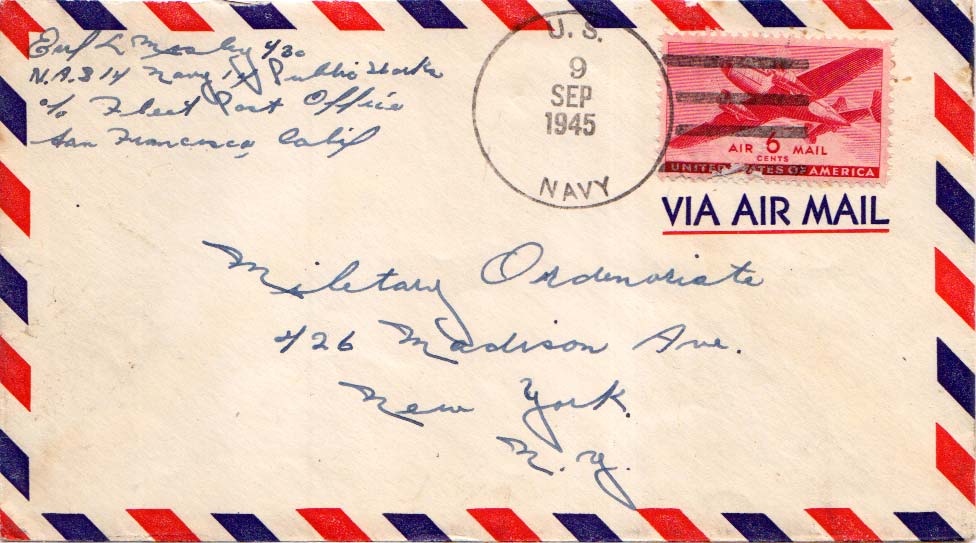 Earl L Mosley 430
N.A.B 14 Navy 14 Public Works
c/o Fleet Post Office
San Francisco, Calif
U. S.
9
SEP
1945
NAVY
AIR 6 MAIL
CENTS
UNITED STATES OF AMERICA
VIA AIR MAIL
Military Ordenoriate
426 Madison Ave.
New York.
N. Y.